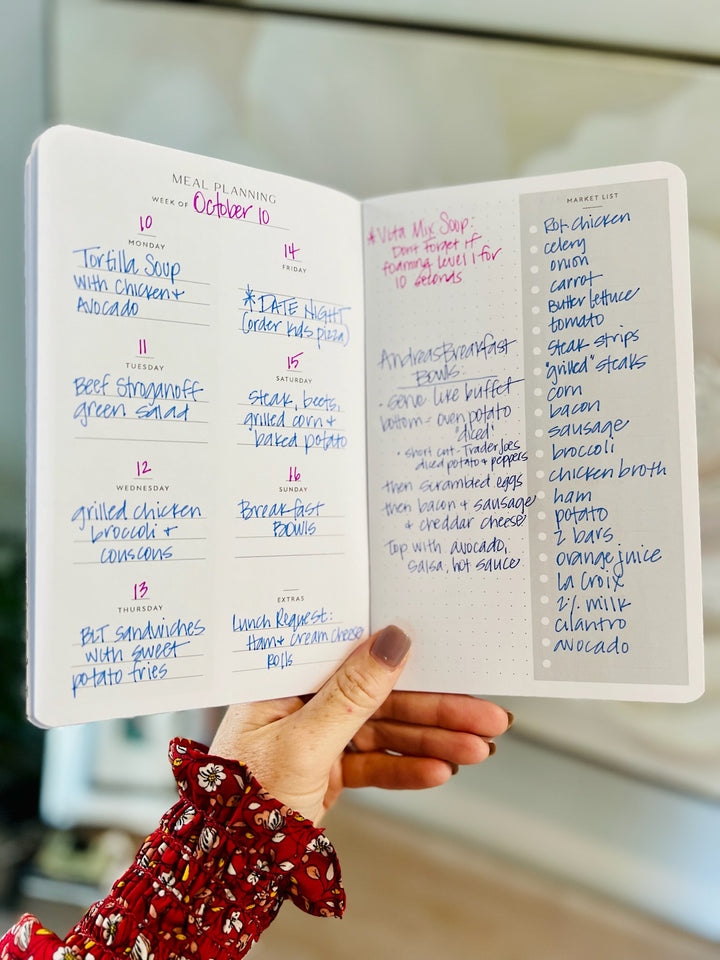 MEAL PLANNING
WEEK OF October 10
10
MONDAY
Tortilla Soup
with chicken +
Avocado
11
TUESDAY
Beef Stroganoff
green salad
12
WEDNESDAY
grilled chicken
broccoli +
couscous
13
THURSDAY
BLT sandwiches
with sweet
potato fries
14
FRIDAY
*DATE NIGHT
(order kids pizza)
15
SATURDAY
steak, beets,
grilled corn +
baked potato
16
SUNDAY
Breakfast
Bowls
EXTRAS
Lunch Request:
Ham + cream cheese
rolls
*Vita Mix Soup:
Dont forget if
foaming level 1 for
10 seconds
Andreas Breakfast
Bowls:
• serve like buffet
bottom - oven potato
"diced"
* short cut - Trader Joes
diced potato + peppers
then scrambled eggs
then bacon + sausage
+ cheddar cheese
Top with avocado,
salsa, hot sauce
MARKET LIST
Rot. chicken
celery
onion
carrot
Butter lettuce
tomato
steak strips
"grilled" steaks
corn
bacon
sausage
broccoli
chicken broth
ham
potato
Z bars
orange juice
La Croix
2% milk
cilantro
avocado